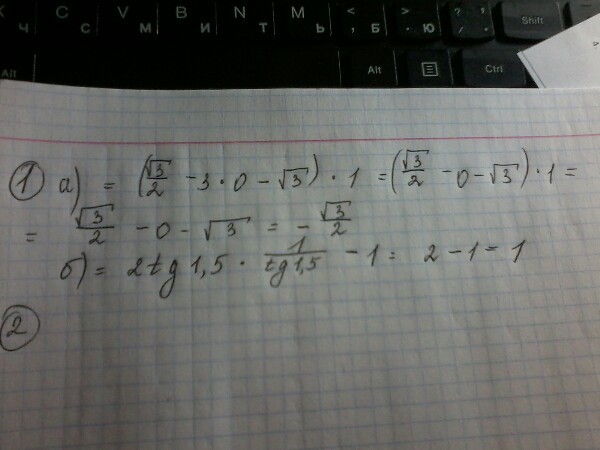 К C V B N M < > ? Shift
Ч С М И Т Ь , Б . Ю / .
Alt Alt Ctrl
1 а) = (√3/2 - 3 · 0 - √3) · 1 = (√3/2 - 0 - √3) · 1 =
= √3/2 - 0 - √3 = - √3/2
б) = 2tg 1,5 · 1/tg 1,5 - 1 = 2 - 1 = 1
2